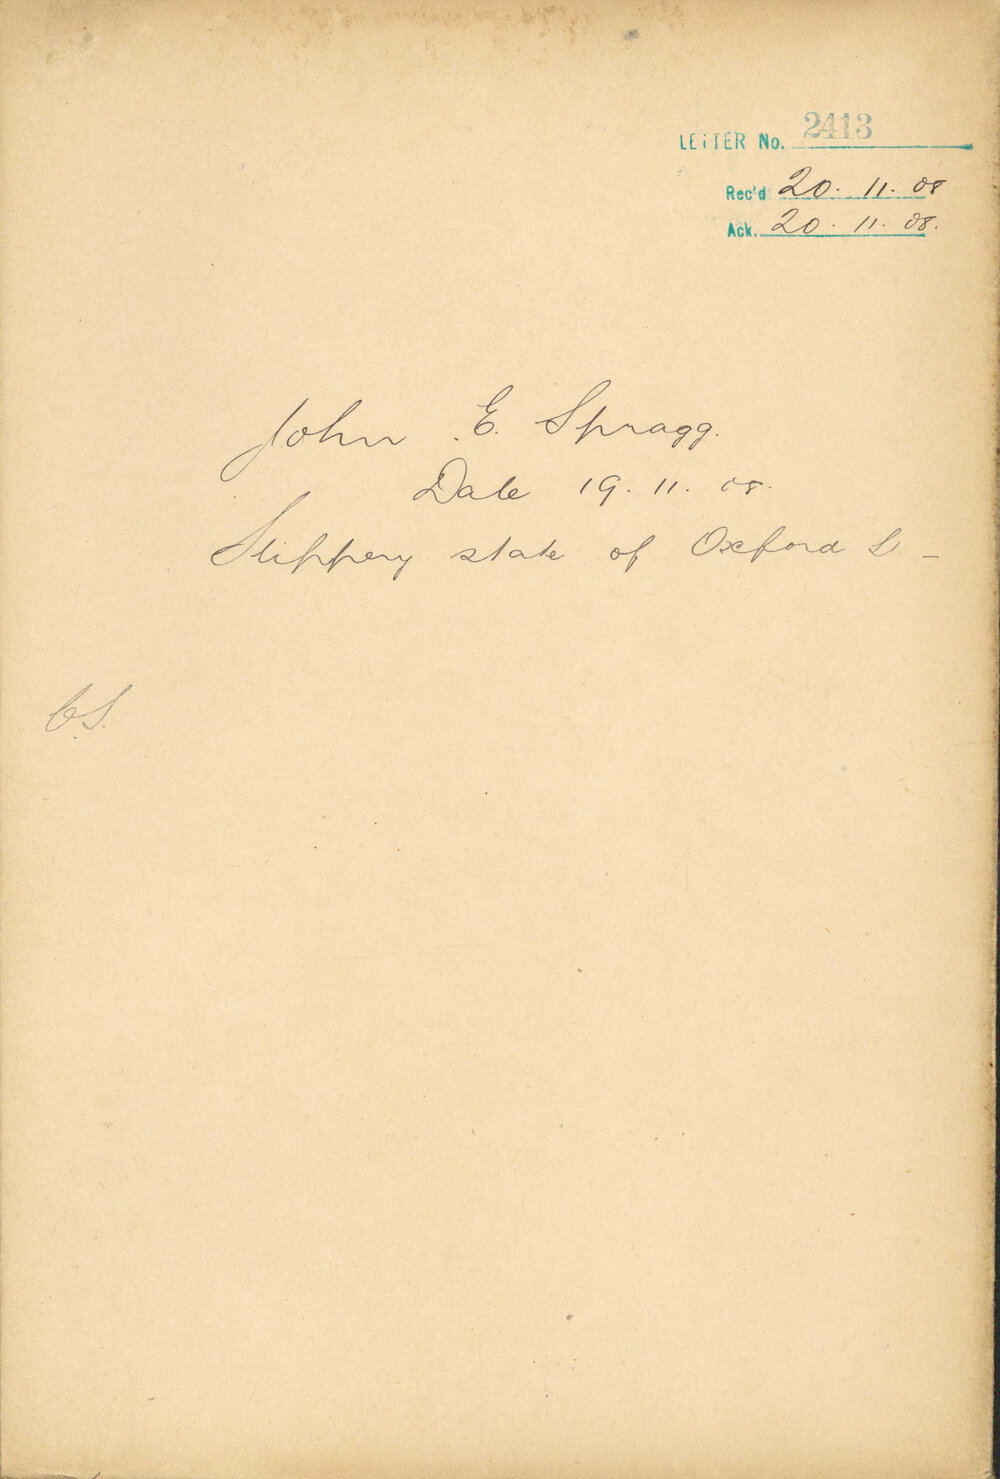 LETTER No. 2413
Rec'd 20. 11. 08
Ack. 20. 11. 08.
John E. Spragg.
Date 19. 11. 08.
Slippery state of Oxford St -
C.S.